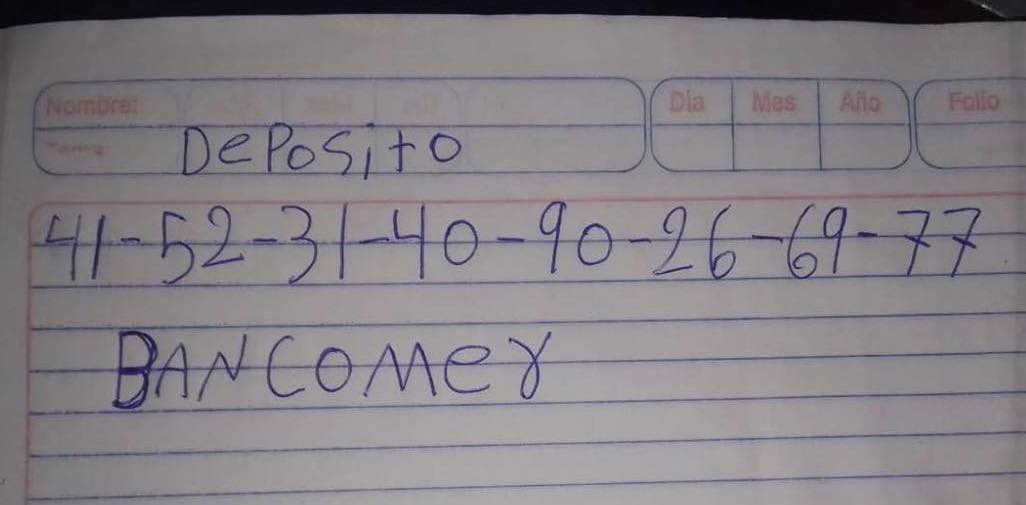 Nombre: Dia Mes Año Folio
DePosito
41-52-31-40-90-26-69-77
BANCOMER